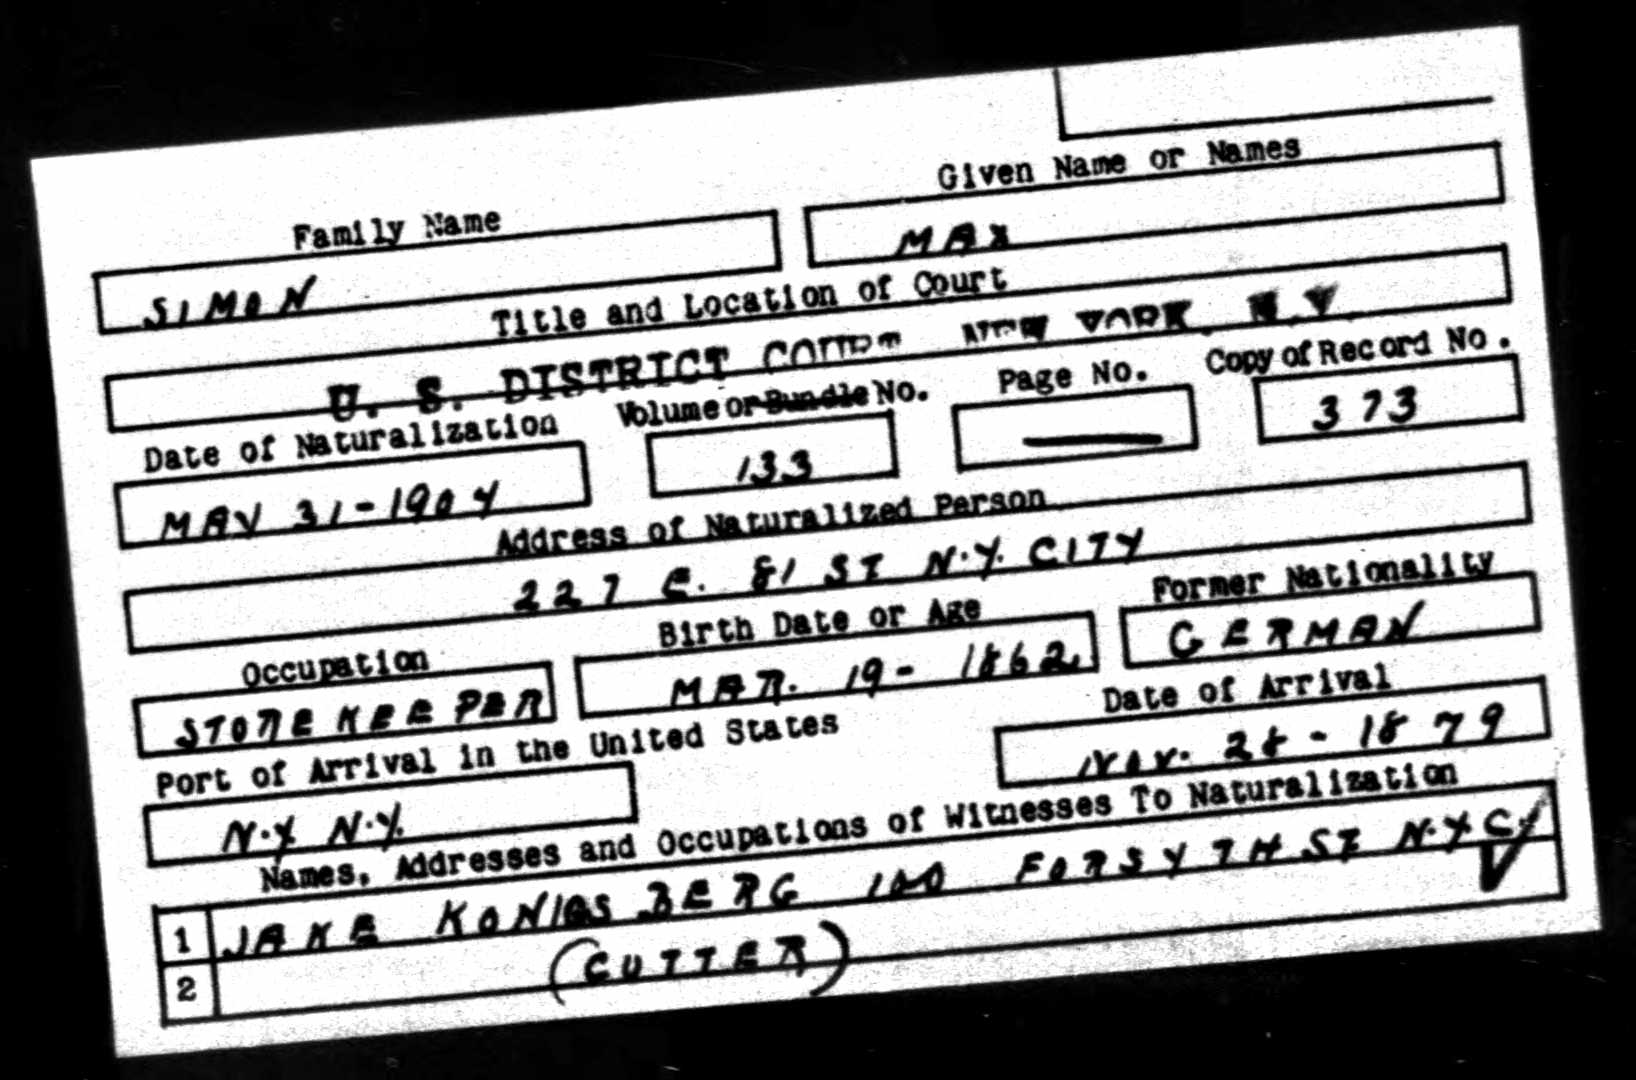 Family Name
Given Name or Names
SIMON
MAX
Title and Location of Court
U. S. DISTRICT COURT NEW YORK, N.Y.
Date of Naturalization
Volume or Bundle No.
Page No.
Copy of Record No.
MAY 31-1904
133
—
373
Address of Naturalized Person
227 E. 81 ST N.Y. CITY
Occupation
Birth Date or Age
Former Nationality
STOREKEEPER
MAR. 19-1862
GERMAN
Port of Arrival in the United States
Date of Arrival
N.Y. N.Y.
NOV. 28-1879
Names, Addresses and Occupations of Witnesses To Naturalization
1 JAKE KONIGSBERG 100 FORSYTH ST N.Y.C.
2 (CUTTER)